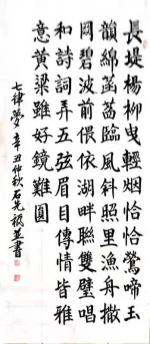 長堤楊柳曳輕烟恰恰鶯啼玉
韻綿菡萏臨風斜照里漁舟撒
网碧波前偎依湖畔聯雙璧唱
和詩詞弄五弦眉目傳情皆雅
意黄粱雖好鏡難圓
七律夢 辛丑仲秋石並書